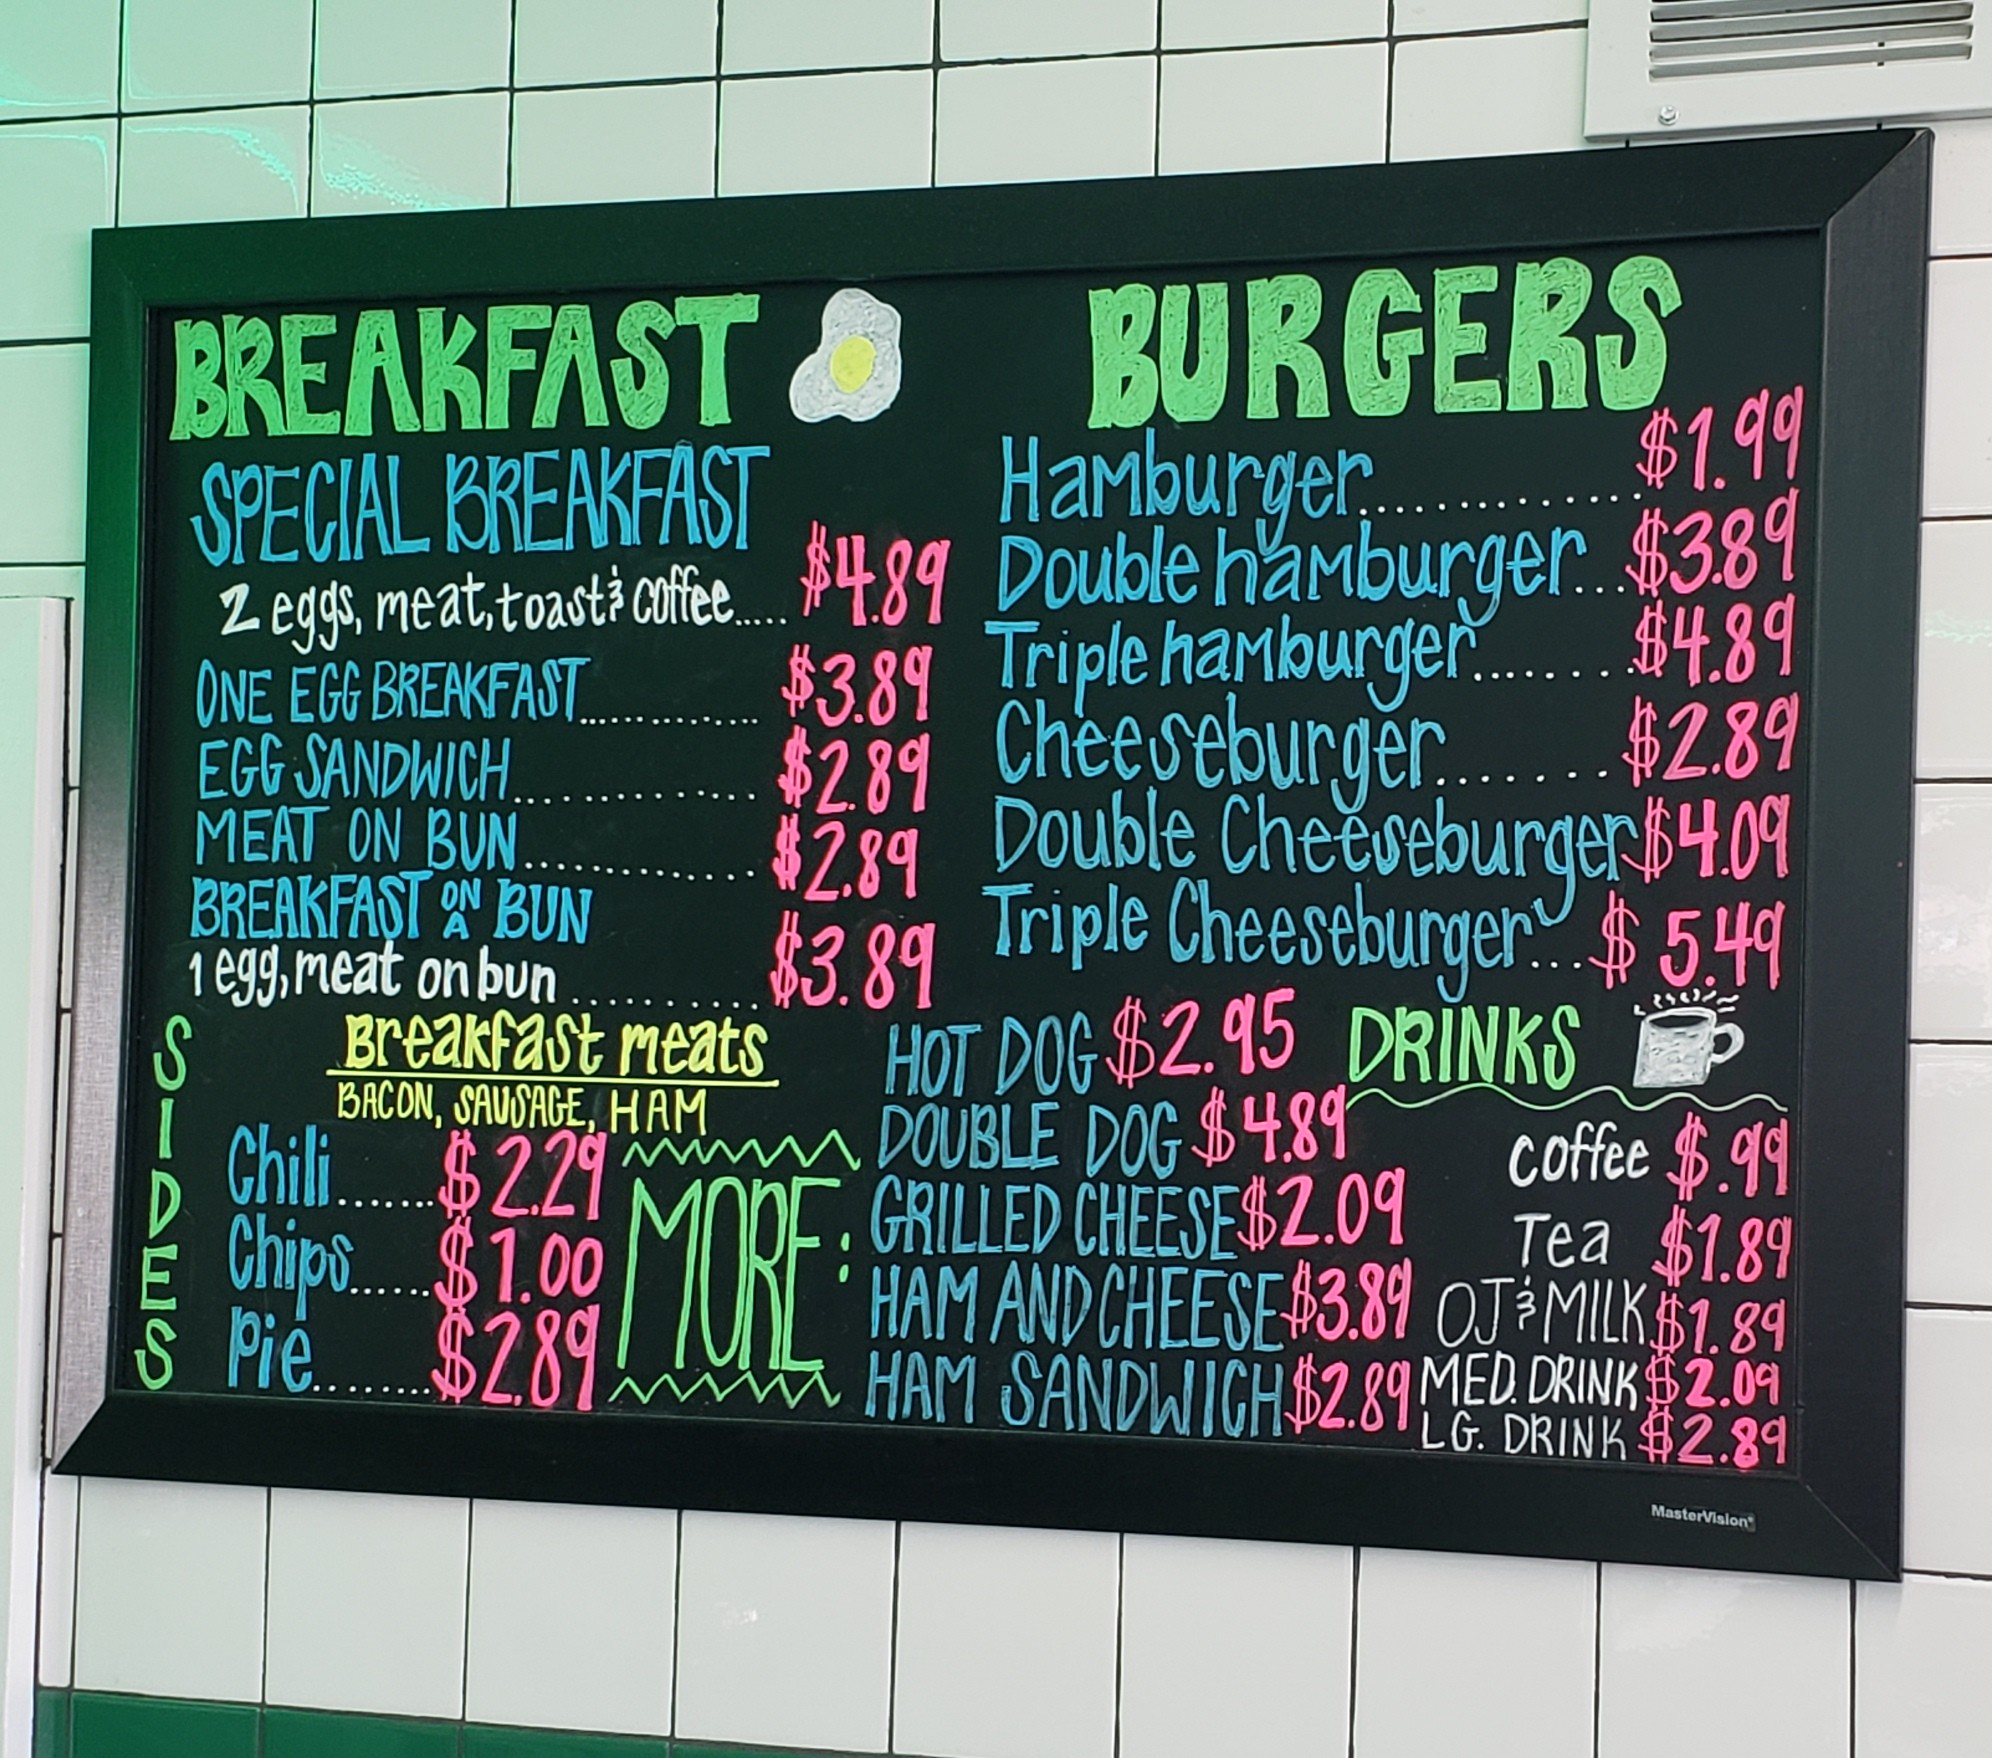 BREAKFAST
SPECIAL BREAKFAST
2 eggs, meat, toast & coffee..... $4.89
ONE EGG BREAKFAST............. $3.89
EGG SANDWICH............. $2.89
MEAT ON BUN............. $2.89
BREAKFAST ON A BUN
1 egg, meat on bun........... $3.89
Breakfast meats
BACON, SAUSAGE, HAM
SIDES
Chili....... $2.29
Chips...... $1.00
Pie........ $2.89
BURGERS
Hamburger.............. $1.99
Double hamburger... $3.89
Triple hamburger....... $4.89
Cheeseburger....... $2.89
Double Cheeseburger $4.09
Triple Cheeseburger... $5.49
MORE:
HOT DOG $2.95
DOUBLE DOG $4.89
GRILLED CHEESE $2.09
HAM AND CHEESE $3.89
HAM SANDWICH $2.89
DRINKS
coffee $.99
Tea $1.89
OJ & MILK $1.89
MED. DRINK $2.09
LG. DRINK $2.89
MasterVision®